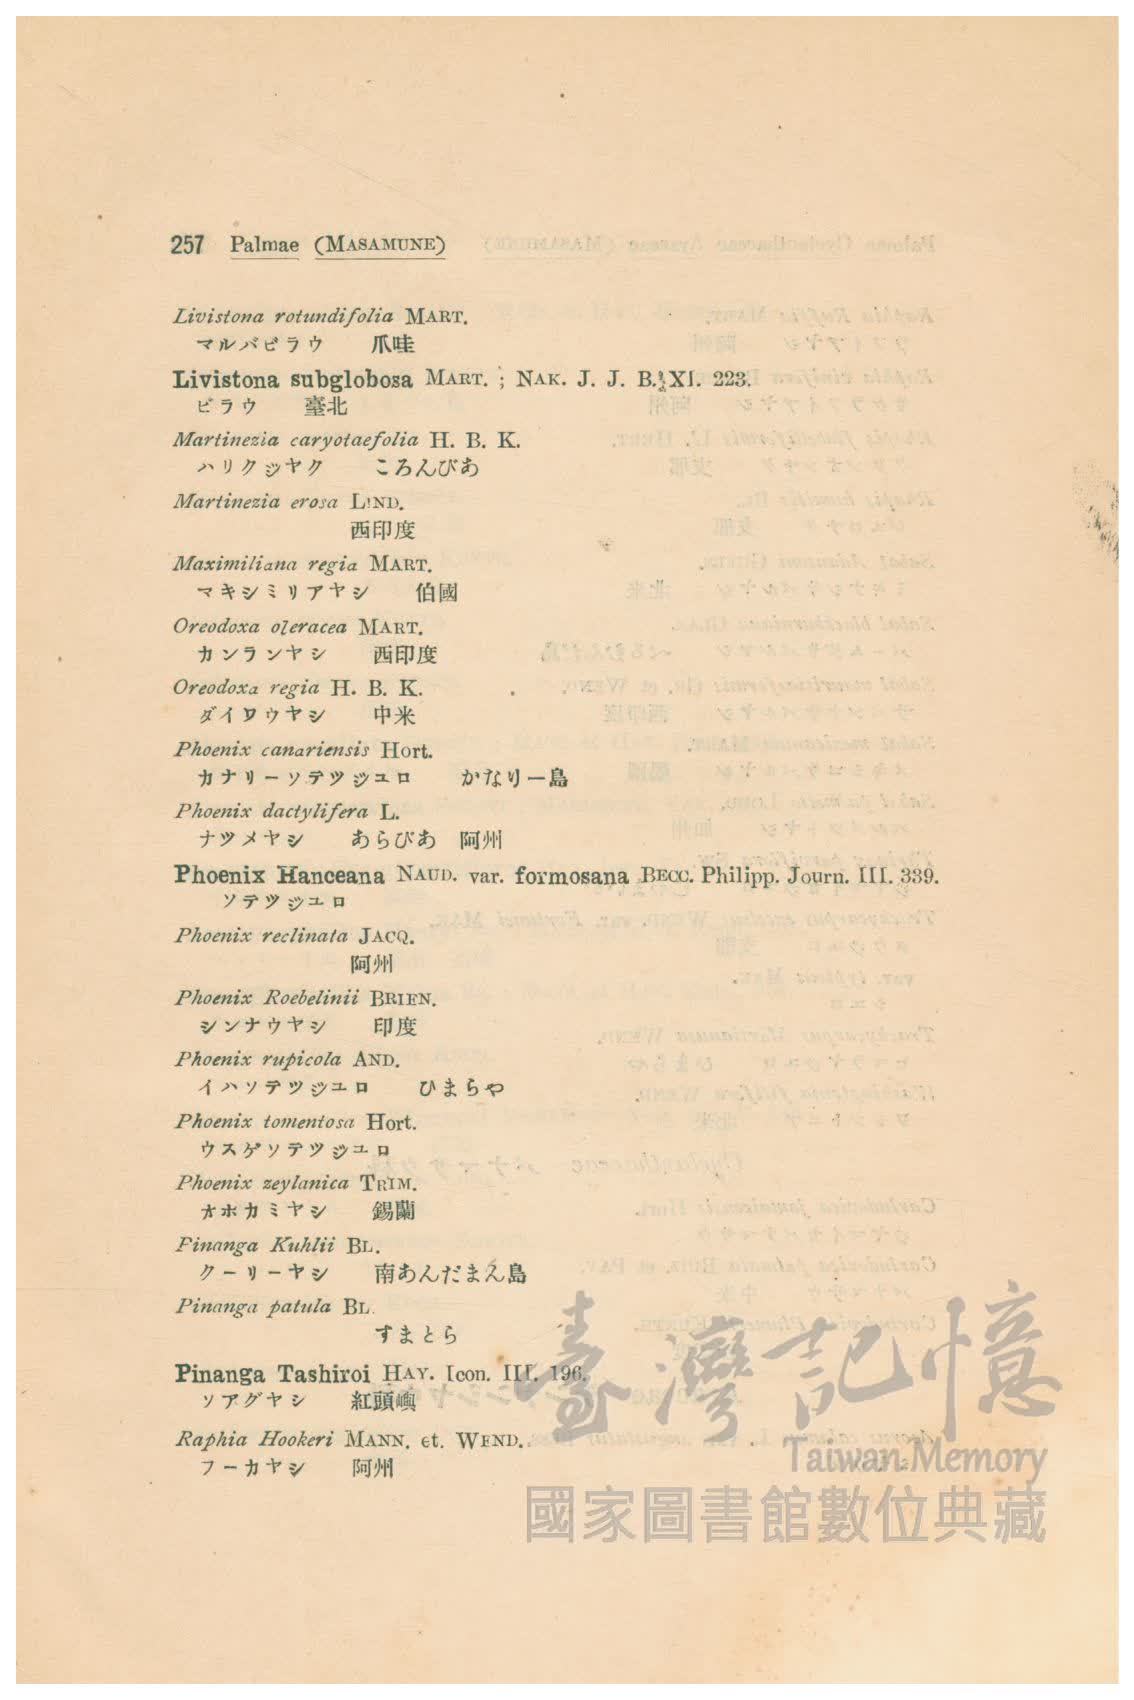 257 Palmae (MASAMUNE)
Livistona rotundifolia MART.
マルバビラウ 爪哇
Livistona subglobosa MART. ; NAK. J. J. B. XI. 223.
ビラウ 臺北
Martinezia caryotaefolia H. B. K.
ハリクジヤク ころんびあ
Martinezia erosa LIND.
西印度
Maximiliana regia MART.
マキシミリアヤシ 伯國
Oreodoxa oleracea MART.
カンランヤシ 西印度
Oreodoxa regia H. B. K.
ダイワウヤシ 中米
Phoenix canariensis Hort.
カナリーソテツジユロ かなりー島
Phoenix dactylifera L.
ナツメヤシ あらびあ 阿州
Phoenix Hanceana NAUD. var. formosana BECC. Philipp. Journ. III. 339.
ソテツジユロ
Phoenix reclinata JACQ.
阿州
Phoenix Roebelinii BRIEN.
シンナウヤシ 印度
Phoenix rupicola AND.
イハソテツジユロ ひまらや
Phoenix tomentosa Hort.
ウスゲソテツジユロ
Phoenix zeylanica TRIM.
オホカミヤシ 錫蘭
Pinanga Kuhlii BL.
クーリーヤシ 南あんだまん島
Pinanga patula BL.
すまとら
Pinanga Tashiroi HAY. Icon. III. 196.
ソアグヤシ 紅頭嶼
Raphia Hookeri MANN. et. WEND.
フーカヤシ 阿州
臺灣記憶
Taiwan Memory
國家圖書館數位典藏